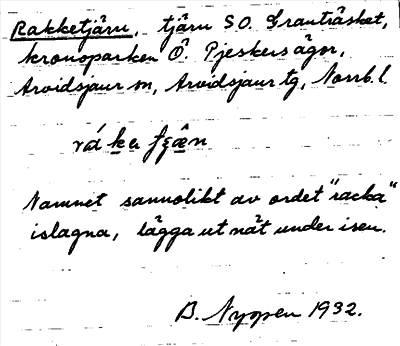 Rakketjärn, tjärn SO. Granträsket,
kronoparken Ö. Pjeskers ägor,
Arvidsjaur sn, Arvidsjaur tg, Norrb. l.
Namnet sannolikt av ordet "racka"
islagna, lägga ut nät under isen.
B. Nygren 1932.